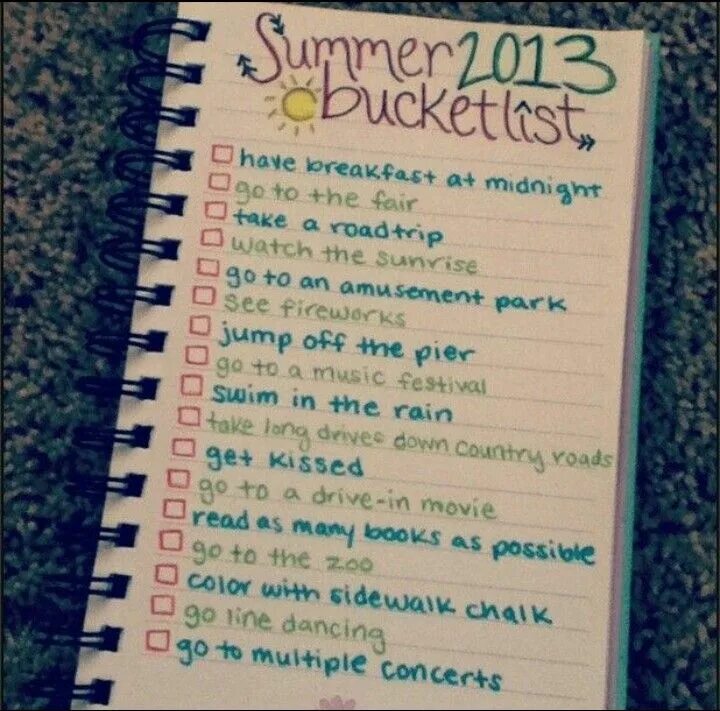 Summer 2013
bucket list
have breakfast at midnight
go to the fair
take a roadtrip
watch the sunrise
go to an amusement park
see fireworks
jump off the pier
go to a music festival
swim in the rain
take long drives down country roads
get kissed
go to a drive-in movie
read as many books as possible
go to the zoo
color with sidewalk chalk
go line dancing
go to multiple concerts